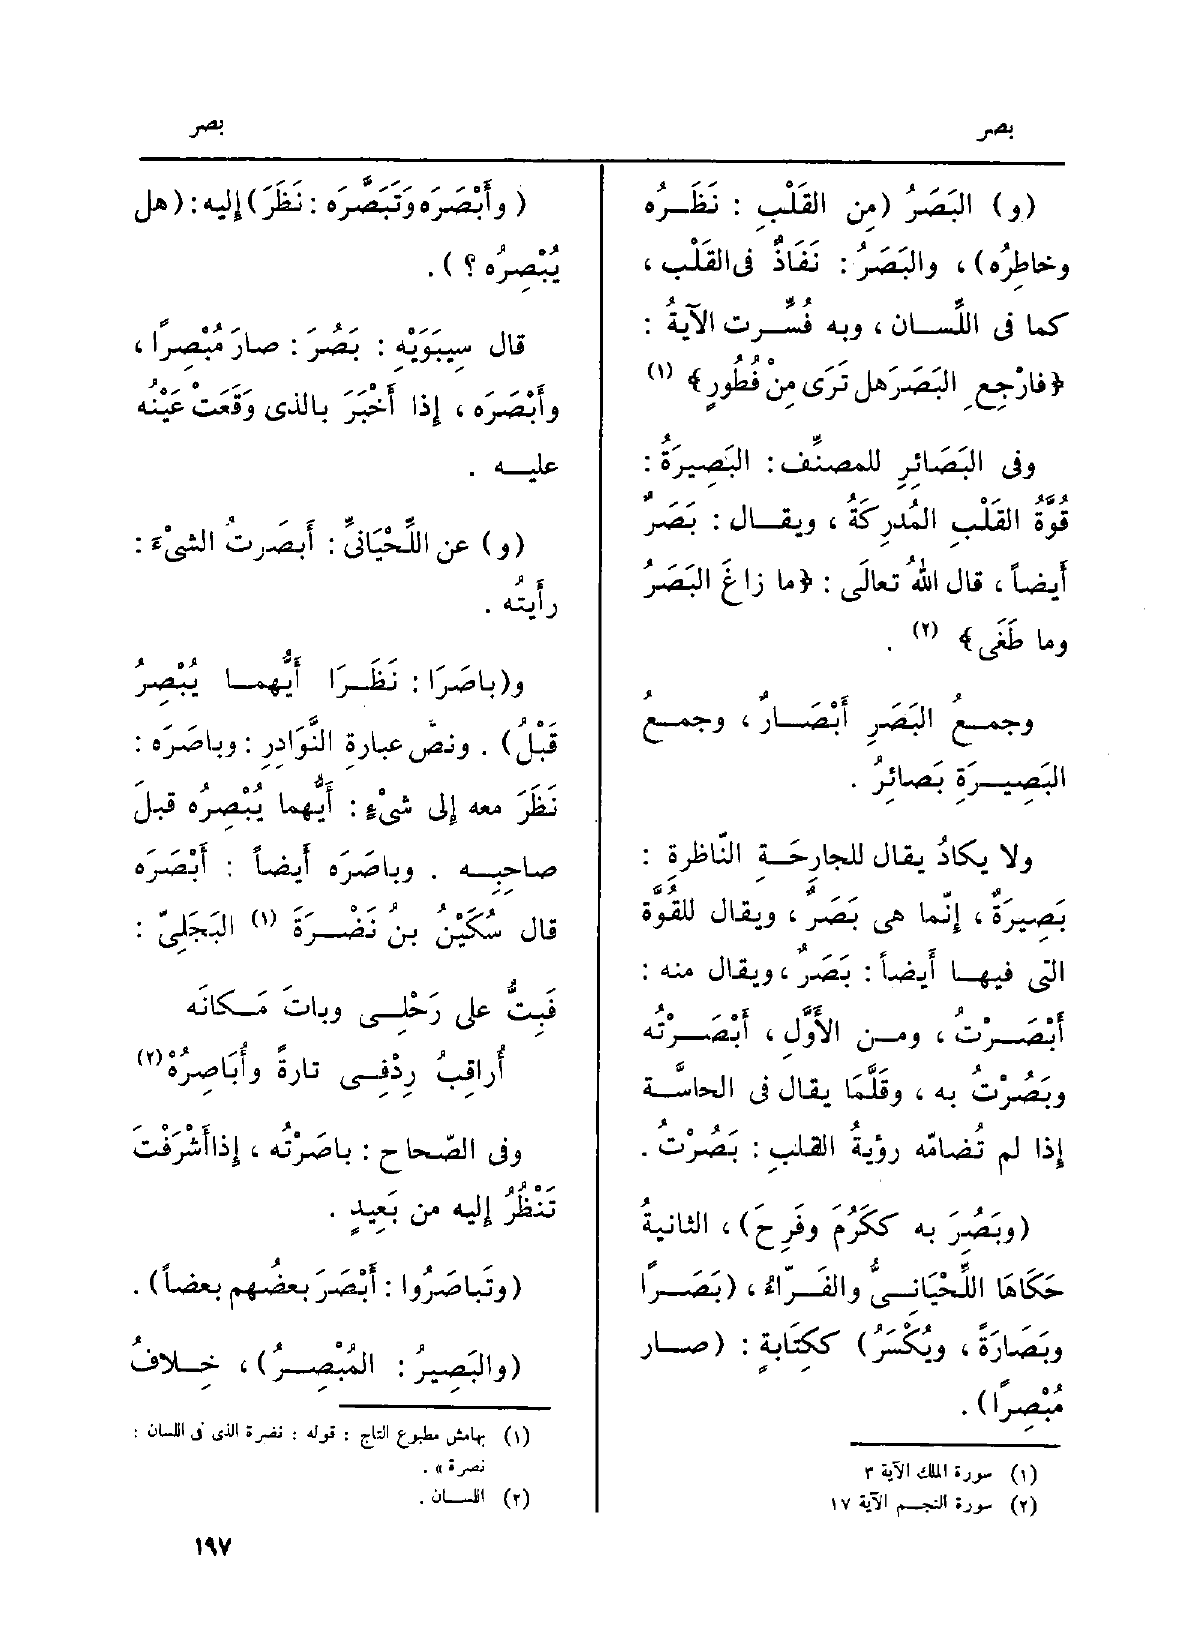 بصر
بصر
(و) البَصَرُ (مِن القَلْبِ : نَظَرُه
وخاطِرُه) ، والبَصَرُ : نَفَاذٌ فى القَلْب ،
كما فى اللِّسان ، وبه فُسِّرت الآيةُ :
﴿فارْجِعِ البَصَرَ هل تَرَى مِنْ فُطُورٍ﴾ (١)
وفى البَصَائِرِ للمصنِّف : البَصِيرَةُ :
قُوَّةُ القَلْبِ المُدرِكَةُ ، ويقال : بَصَرٌ
أيضاً ، قال اللهُ تعالَى : ﴿ما زاغَ البَصَرُ
وما طَغَى﴾ (٢) .
وجمعُ البَصَرِ أَبْصَارٌ ، وجمعُ
البَصِيرَةِ بَصائرُ .
ولا يكادُ يقال للجارِحَةِ النّاظرةِ :
بَصِيرَةٌ ، إنّما هى بَصَرٌ ، ويقال للقُوَّة
التى فيها أيضاً : بَصَرٌ ، ويقال منه :
أَبْصَرْتُ ، ومن الأَوَّلِ ، أَبْصَرْتُه
وبَصُرْتُ به ، وقَلَّمَا يقال فى الحاسَّة
إذا لم تُضامّه رؤيةُ القلبِ : بَصُرْتُ .
(وبَصُرَ به ككَرُمَ وفَرِحَ) ، الثانيةُ
حَكَاهَا اللِّحْيَانِىُّ والفَرّاءُ ، (بَصَرًا
وبَصَارَةً ، ويُكْسَرُ) ككِتَابةٍ : (صار
مُبْصِرًا) .
(١) سورة الملك الآية ٣
(٢) سورة النجم الآية ١٧
(وأَبْصَرَه وتَبَصَّرَه : نَظَرَ) إليه : (هل
يُبْصِرُه ؟ ) .
قال سِيبَوَيْهِ : بَصُرَ : صارَ مُبْصِرًا ،
وأَبْصَرَه ، إذا أَخْبَرَ بالذى وَقَعَتْ عَيْنُه
عليه .
(و) عن اللِّحْيَانِىِّ : أَبصَرتُ الشىْءَ :
رأَيتُه .
و(باصَرَا : نَظَرَا أَيُّهما يُبْصِرُ
قَبْلُ) . ونصّ عبارةِ النَّوَادِرِ : وباصَرَه :
نَظَرَ معه إلى شىْءٍ : أَيُّهما يُبْصِرُه قبلَ
صاحِبِه . وباصَرَه أيضاً : أَبْصَرَه
قال سُكَيْنُ بنُ نَضْرَةَ (١) البَجَلِىّ :
فَبِتُّ على رَحْلِى وباتَ مَكانَه
أُراقِبُ رِدْفِى تارةً وأُبَاصِرُهْ (٢)
وفى الصّحاح : باصَرْتُه ، إذا أَشْرَفْتَ
تَنْظُرُ إليه من بَعِيدٍ .
(وتَباصَرُوا : أَبْصَرَ بعضُهم بعضاً) .
(والبَصِيرُ : المُبْصِرُ) ، خِلافُ
(١) بهامش مطبوع التاج : قوله : نضرة الذى فى اللسان :
نصرة » .
(٢) اللسان .
١٩٧